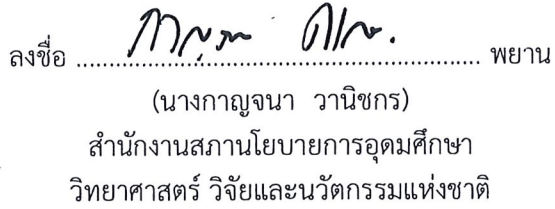 ลงชื่อ ........................................................ พยาน
(นางกาญจนา วานิชกร)
สำนักงานสภานโยบายการอุดมศึกษา
วิทยาศาสตร์ วิจัยและนวัตกรรมแห่งชาติ